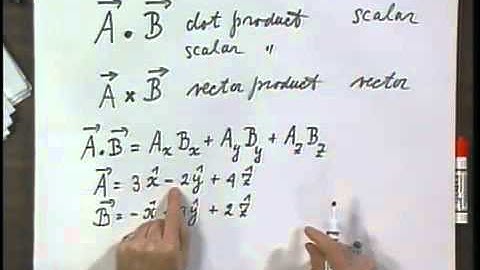 A⃗ • B⃗ dot product scalar
scalar "
A⃗ x B⃗ vector product vector
A⃗ . B⃗ = AₓBₓ + A_yB_y + A_zB_z
A⃗ = 3 x̂ - 2ŷ + 4 ẑ
B⃗ = - x̂ ŷ + 2 ẑ